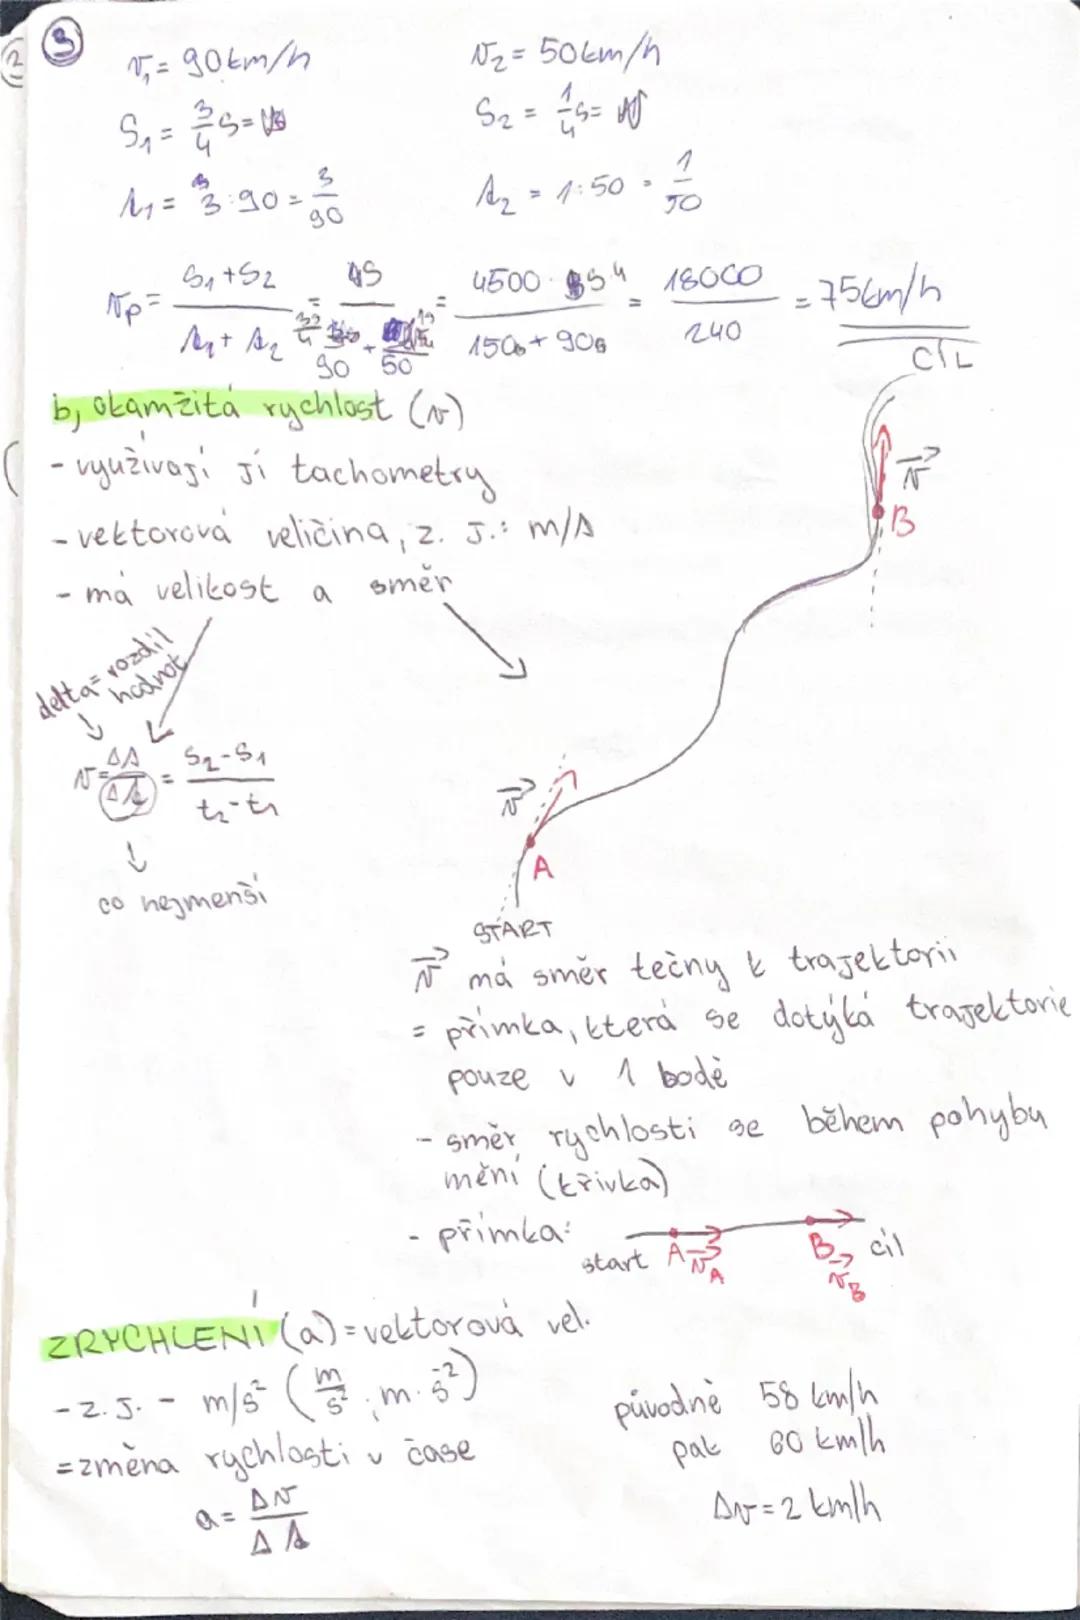 3
2
v₁ = 90 km/h
v₂ = 50 km/h
S₁ = 3/4 s =
S₂ = 1/4 s =
t₁ = 3 : 90 = 3/90
t₂ = 1 : 50 = 1/50
vp = (s₁ + s₂)/(t₁ + t₂) = = = 18000/240 = 75 km/h
b, okamžitá rychlost (v)
- využívají jí tachometry
- vektorová veličina, z. J.: m/s
- má velikost a směr
delta = rozdíl hodnot
v = Δs/Δt = (s₂ - s₁)/(t₂ - t₁)
co nejmenší
CÍL
v⃗
B
v⃗
A
START
v⃗ má směr tečny k trajektorii
= přímka, která se dotýká trajektorie
pouze v 1 bodě
- směr rychlosti se během pohybu
mění (křivka)
- přímka:
start A v⃗A B v⃗B cíl
ZRYCHLENÍ (a) = vektorová vel.
- z. J. - m/s² (m/s² ; m · s⁻²)
= změna rychlosti v čase
a = Δv/Δt
původně 58 km/h
pak 60 km/h
Δv = 2 km/h